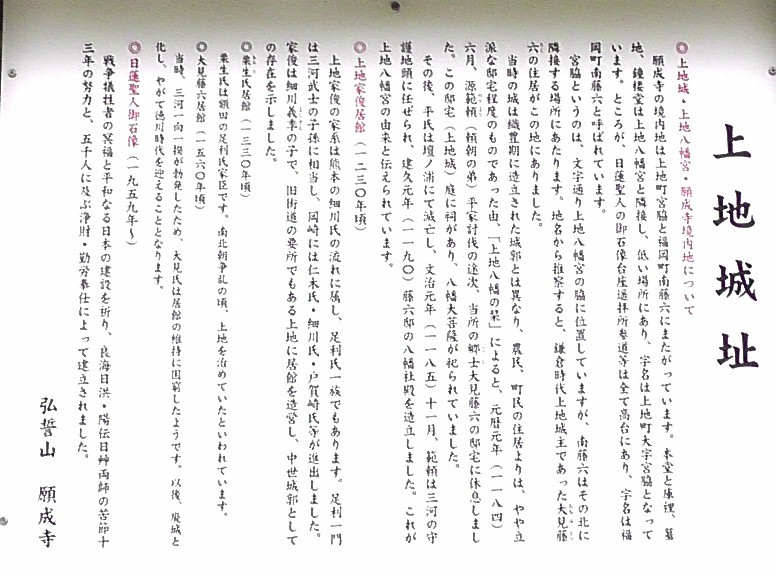 上地城址
◎上地城・上地八幡宮・願成寺境内地について
願成寺の境内地は上地町宮脇と福岡町南藤六にまたがっています。本堂と庫裡、墓
地、鐘楼堂は上地八幡宮と隣接し、低い場所にあり、字名は上地町大字宮脇となって
います。ところが、日蓮聖人の御石像台座遥拝所参道等は全て高台にあり、字名は福
岡町南藤六と呼ばれています。
宮脇というのは、文字通り上地八幡宮の脇に位置していますが、南藤六はその北に
隣接する場所にあたります。地名から推察すると、鎌倉時代上地城主であった大見藤
六の住居がこの地にありました。
当時の城は織豊期に造立された城郭とは異なり、農民、町民の住居よりは、やや立
派な邸宅程度のものであった由、「上地八幡の栞」によると、元暦元年（一一八四）
六月、源範頼（頼朝の弟）平家討伐の途次、当所の郷士大見藤六の邸宅に休息しまし
た。この邸宅（上地城）庭に祠があり、八幡大菩薩が祀られていました。
その後、平氏は壇ノ浦にて滅亡し、文治元年（一一八五）十一月、範頼は三河の守
護地頭に任ぜられ、建久元年（一一九〇）藤六邸の八幡社殿を造立しました。これが
上地八幡宮の由来と伝えられています。
◎上地家俊居館（一二三〇年頃）
上地家俊の家系は熊本の細川氏の流れに属し、足利氏一族でもあります。足利一門
は三河武士の子孫に相当し、岡崎には仁木氏・細川氏・戸賀崎氏等が進出しました。
家俊は細川義季の子で、旧街道の要所でもある上地に居館を造営し、中世城郭として
の存在を示しました。
◎粟生氏居館（一三三〇年頃）
粟生氏は額田の足利氏家臣です。南北朝争乱の頃、上地を治めていたといわれています。
◎大見藤六居館（一五六〇年頃）
当時、三河一向一揆が勃発したため、大見氏は居館の維持に困窮したようです。以後、廃城と
化し、やがて徳川時代を迎えることとなります。
◎日蓮聖人御石像（一九五九年～）
戦争犠牲者の冥福と平和なる日本の建設を祈り、良海日洪・陽伝日艸両師の苦節十
三年の努力と、五千人に及ぶ浄財・勤労奉仕によって建立されました。
弘誓山　願成寺